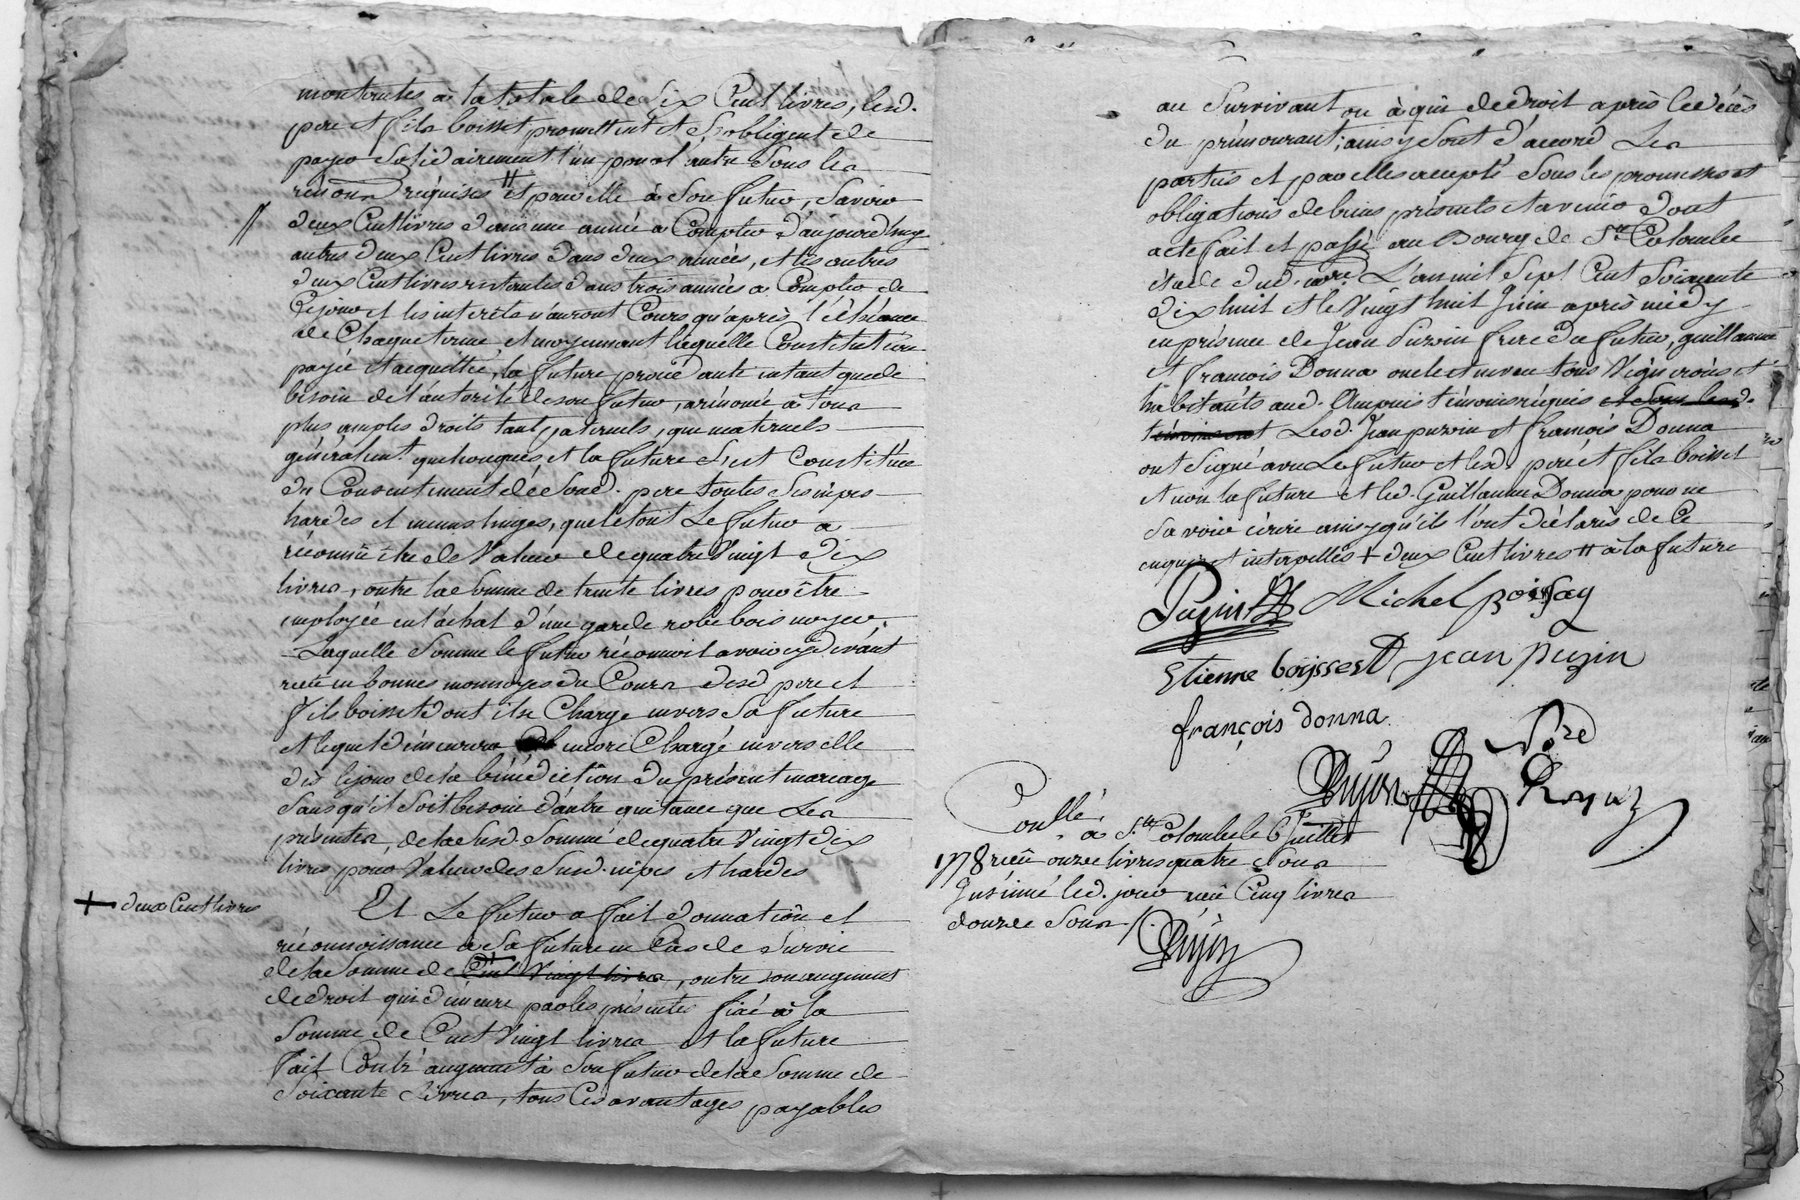 montantes à la totale de Six Cent livres, lesd.
pere et fils boisset promettent et s'obligent de
payer Solidairement l'un pour l'autre Sous les
renon requises # et pour elle à Son futur, Savoir
deux Cent livres dans une année a Compter d'aujourd'huy
autres deux Cent livres dans deux années, et les autres
deux Cent livres restantes dans trois années a Compter de
Ce jour et les interets n'auront Cours qu'après l'échéance
de Chaque terme et moyennant laquelle Constitution
payée et acquittée, la future procédante entant que de
besoin de l'autorité de son futur, a renoncé à tous
plus amples droits tant paternels, que maternels
généralement quelconques et la future s'est Constituée
du Consentement de Sond. pere toutes Ses nipes
hardes et menus linges, que le tout Le futur a
réconnu être de Valeur de quatre Vingt dix
livres, outre la Somme de trente livres pour être
employée en l'achat d'une garde robe bois noyer.
Laquelle Somme le futur réconnoit avoir cy devant
reçu en bonnes monnoyes du Cours desd pere et
fils boisset dont il se Charge envers Sa future
et lequel démeurera encore Chargé envers elle
des le jour de la bénédiction du présent mariage
Sans qu'il Soit besoin d'autre quitance que Les
présentes, de lad Susd. Somme de quatre Vingt dix
livres pour Valeur des Susd. nipes et hardes
+ deux Cent livres
Et Le futur a fait donnation et
réconnoissance a Sa future en Cas de Survie
de la Somme de + Cent Vingt livres, outre son augment
de droit qui démeure par les présentes fixé à la
Somme de Cent Vingt livres et la future
fait Contr'augment à Son futur de la Somme de
Soixante Livres, tous Ces avantages payables
au Survivant ou à qui de droit après le décès
du prémourant; ainsy Sont d'accord Les
parties et par elles accepté Sous les promesses et
obligations de biens présents et avenir dont
acte fait et passé au Bourg de Ste Colombe
étude dud. nore. L'an mil Sept Cent Soixante
dix huit et le Vingt huit Juin après midy
en présence de Jean Puzin frere du futur, guillaume
et françois Donna oncle et neveu tous Vignerons et
habitants aud. Ampuis témoins réquis et Sous lesd.
témoins ont Lesd. Jean puzin et françois Donna
ont Signé avec Le futur et lesd. pere et fils boisset
et non la future et led. Guillaume Donna pour ne
Savoir écrire ainsy qu'ils l'ont déclaré de Ce
enquis et interpellés + deux Cent livres # à la future
Puzin Michel poissay
Etienne boyssest jean puzin
françois donna
Conllé.
à Ste Colombe le 6 Juillet
1778 reçu onze livres quatre Sous
Insinué led. jour reçu Cinq livres
douze Sous